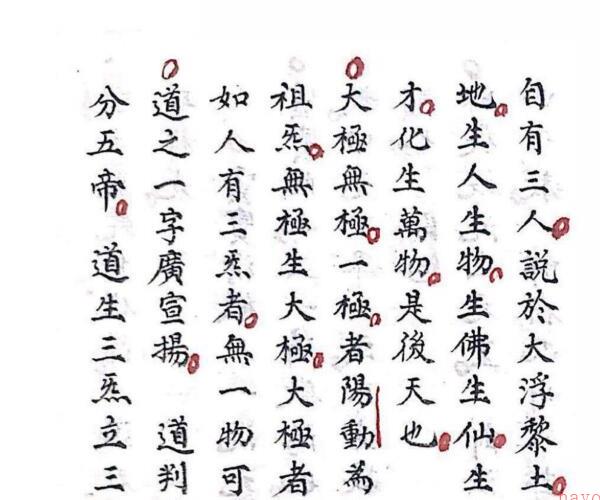 自有三人說於大浮黎土
地生人生物生佛生仙生
才化生萬物是後天也
大極無極一極者陽動為
祖炁無極生大極大極者
如人有三炁者無一物可
道之一字廣宣揚 道判
分五帝 道生三炁立三